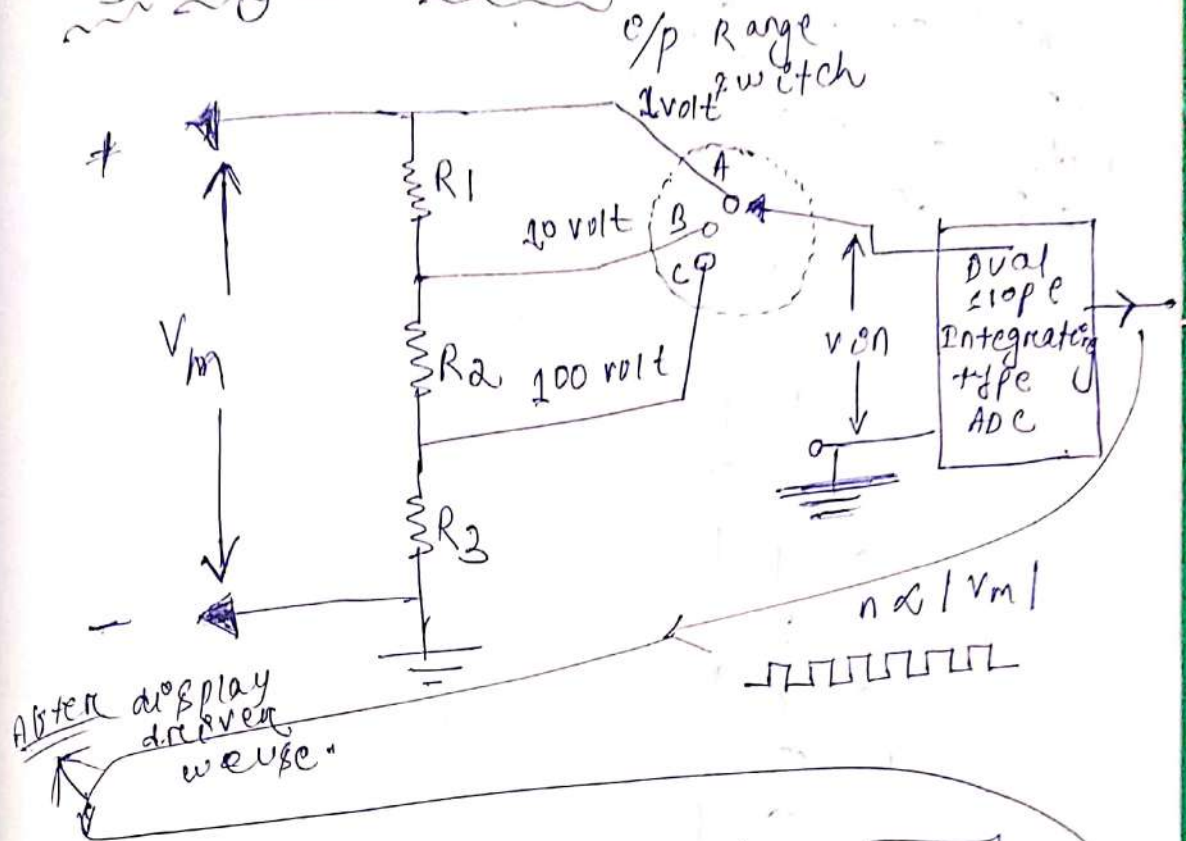 i/p Range
switch
1volt
+
R1
A
10 volt
B
C
Vm
R2
100 volt
vin
Dual
slope
Integrating
type
ADC
R3
n ∝ |Vm|
-
After display
driver
we use"